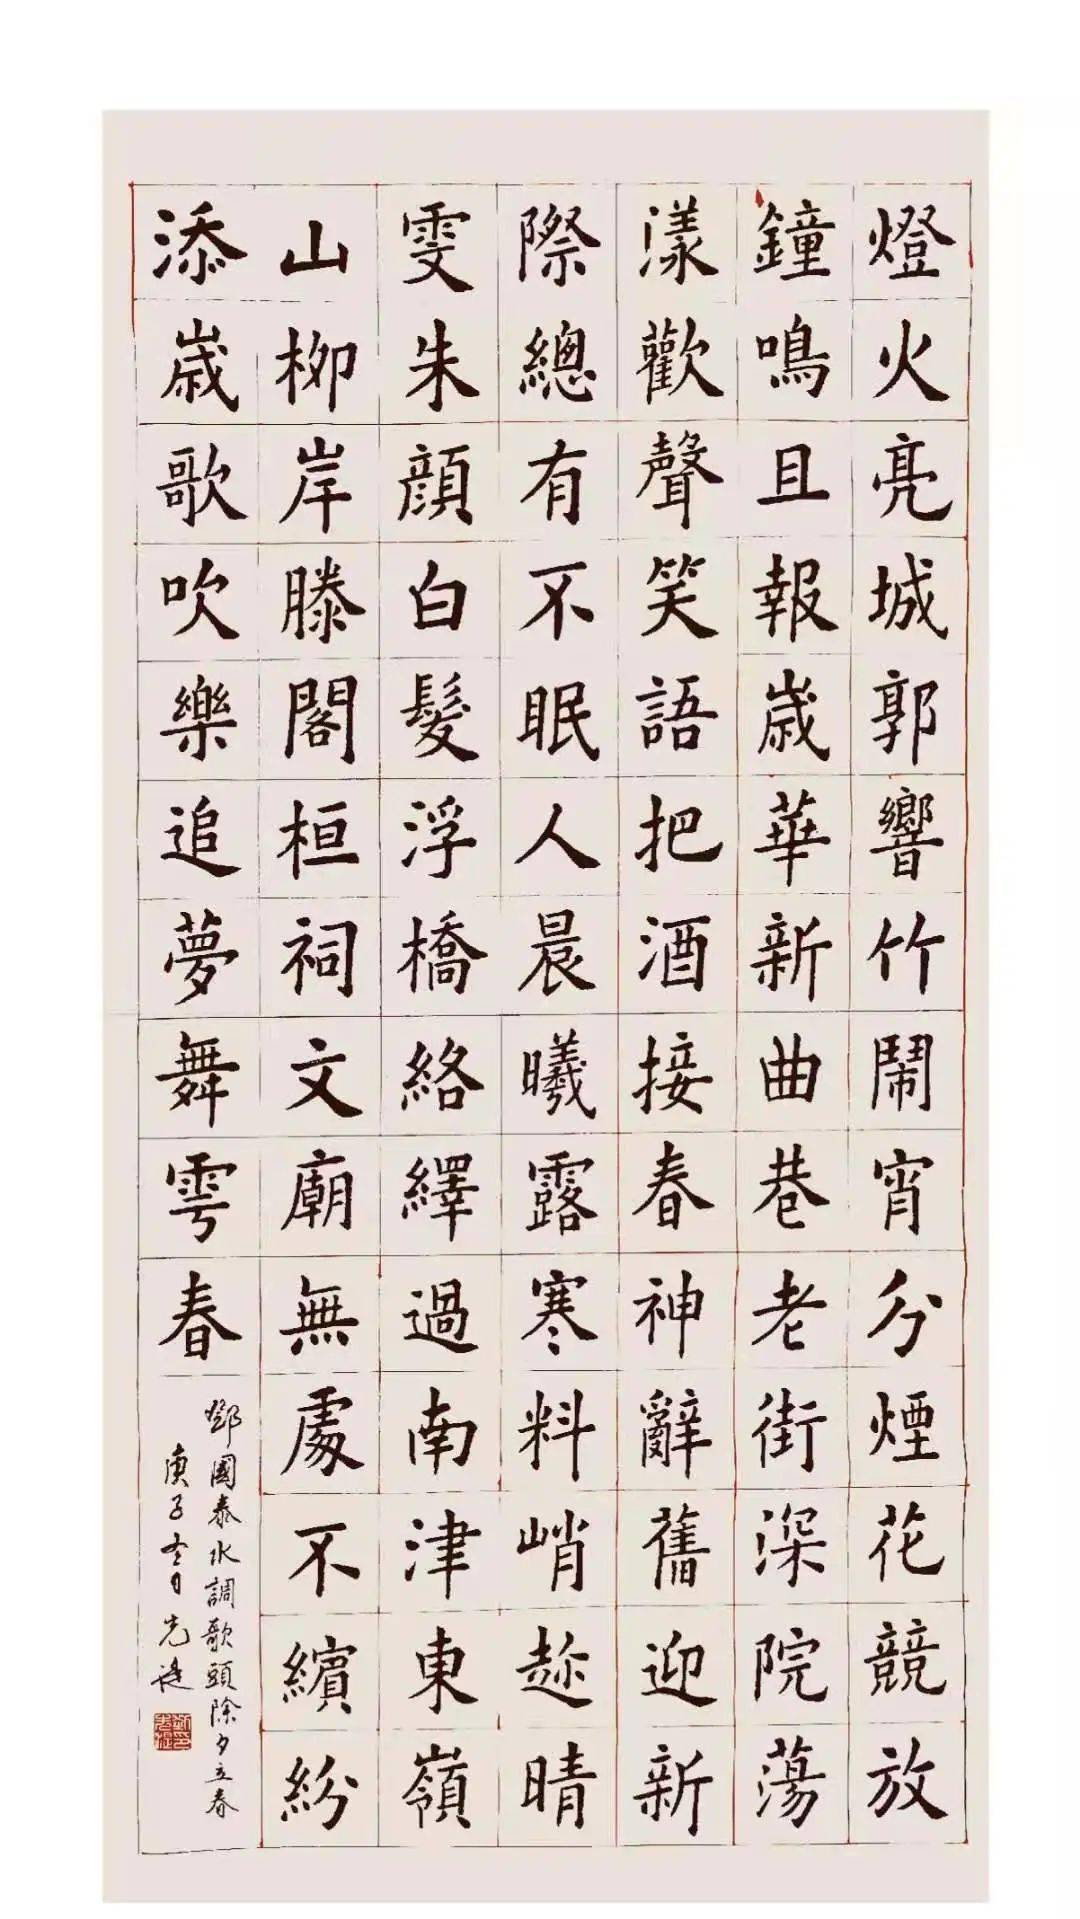 燈火亮城郭響竹鬧宵分煙花競放
鐘鳴且報歲華新曲巷老街深院蕩
漾歡聲笑語把酒接春神辭舊迎新
際總有不眠人晨曦露寒料峭趂晴
雯朱顏白髮浮橋絡繹過南津東嶺
山柳岸滕閣桓祠文廟無處不繽紛
添歲歌吹樂追夢舞雩春
鄧國泰水調歌頭除夕立春
庚子